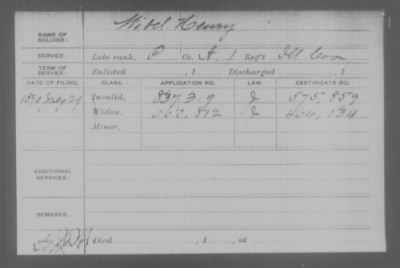 NAME OF SOLDIER: Wibel Henry
SERVICE: Late rank, P Co. A, 1 Reg't Ill Cav
TERM OF SERVICE: Enlisted , 1 Discharged , 1
DATE OF FILING. CLASS. APPLICATION NO. LAW. CERTIFICATE NO.
1890 July 29 Invalid, 837,319 575,859
Widow, 812 464,134
Minor,
ADDITIONAL SERVICES:
REMARKS.
Died , 1 , at